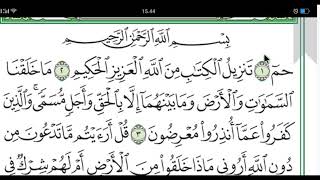 15.44
بِسْمِ ٱللَّهِ ٱلرَّحْمَٰنِ ٱلرَّحِيمِ
حمٓ ١ تَنزِيلُ ٱلْكِتَٰبِ مِنَ ٱللَّهِ ٱلْعَزِيزِ ٱلْحَكِيمِ ٢ مَا خَلَقْنَا
ٱلسَّمَٰوَٰتِ وَٱلْأَرْضَ وَمَا بَيْنَهُمَآ إِلَّا بِٱلْحَقِّ وَأَجَلٍ مُّسَمًّى ۚ وَٱلَّذِينَ
كَفَرُوا۟ عَمَّآ أُنذِرُوا۟ مُعْرِضُونَ ٣ قُلْ أَرَءَيْتُم مَّا تَدْعُونَ مِن
دُونِ ٱللَّهِ أَرُونِى مَاذَا خَلَقُوا۟ مِنَ ٱلْأَرْضِ أَمْ لَهُمْ شِرْكٌ فِى